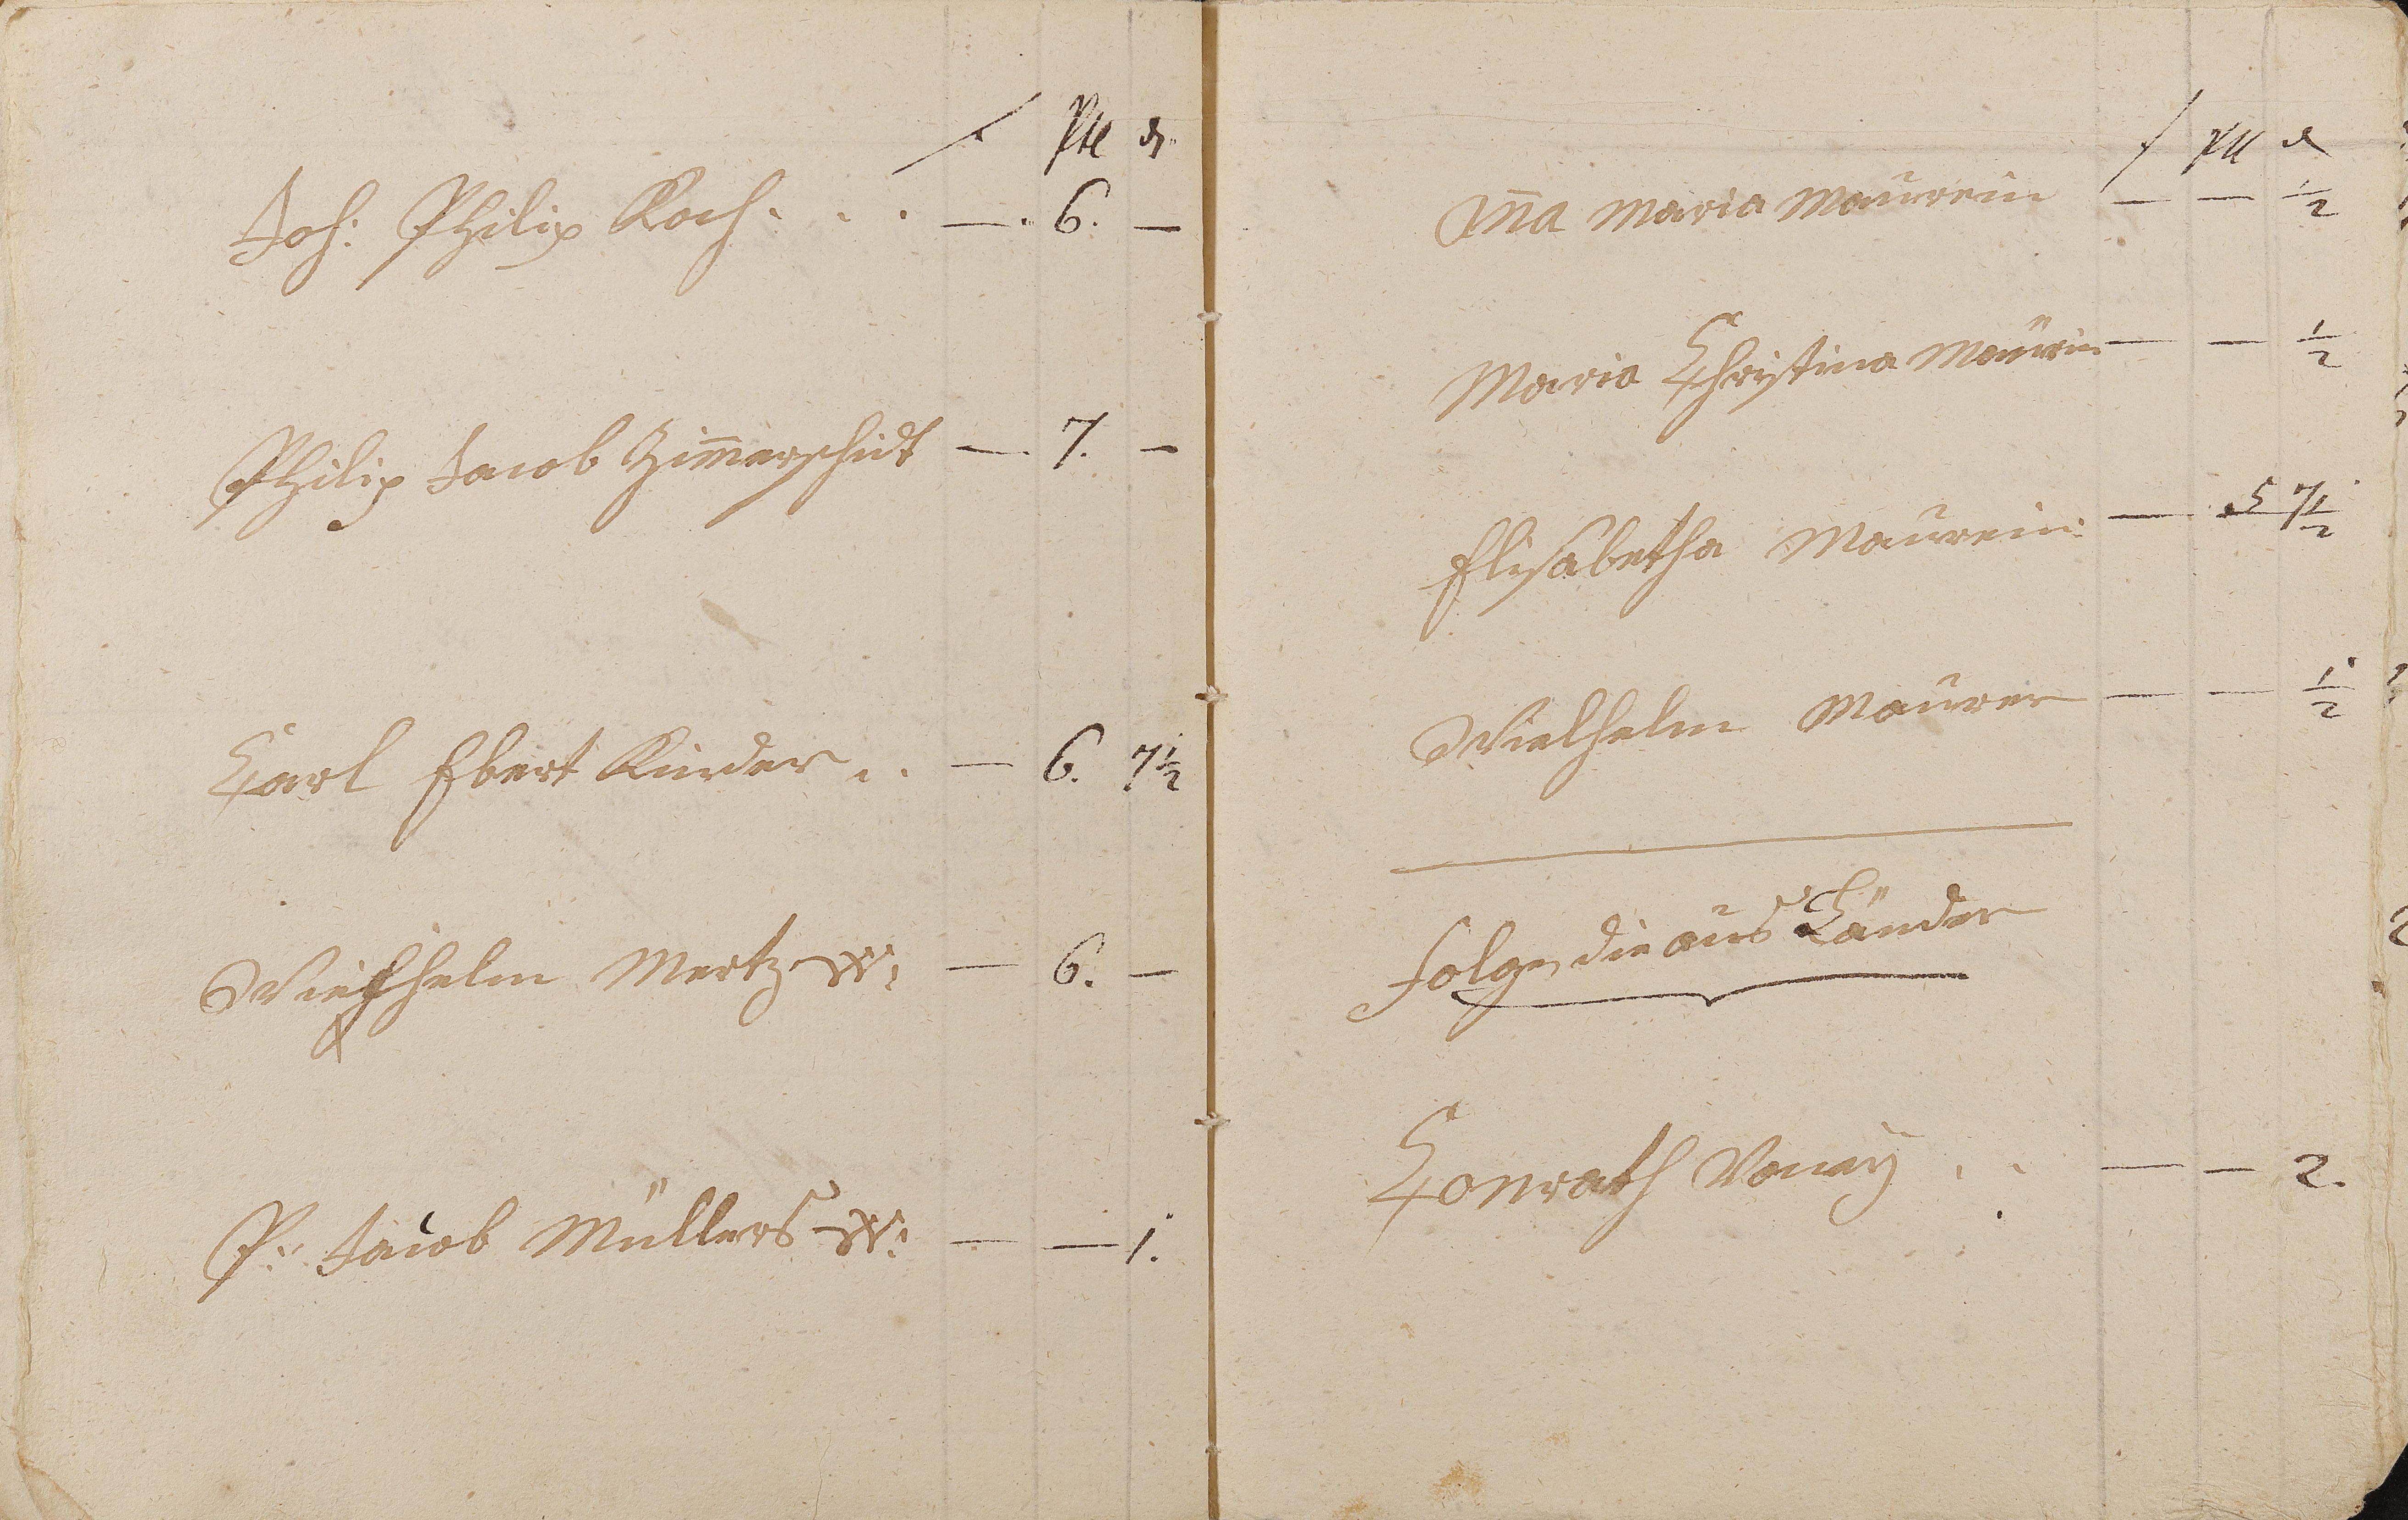 f Xtl ₰
Joh: Philip Koch . . . — . 6. —
Philip Jacob Zim̄erschidt — 7. —
Carl Ebert Kinder . . — 6. 7½
Wielhelm Mertz W: — 6. —
P: Jacob Müllers W: — — 1.
f Xtl ₰
An̄a Maria Maurerin — — ½
Maria Christina Maurin — — ½
Elisabetha Maurerin: — 5 7½
Wielhelm Maurer — — ½
Folgen die aus Länder
Conrath . . — — 2.